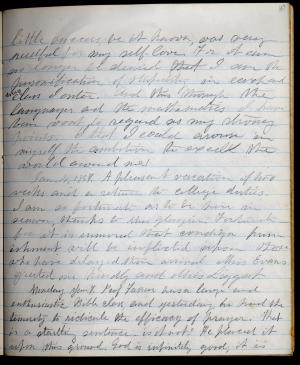 little success be it known, was very
needful for my self love. For it can
no longer be denied that I am the
personification of stupidity in several
class I enter. And this through the
languages and the mathematics I have
been wont to regard as my strong
points. O that I could arouse in
myself the ambition to excell the
world around me!
Jan. 4, 1878. A pleasant vacation of two
weeks and a return to college duties.
I am so fortunate as to be here in
season, thanks to
for it is rumored that condign pun-
ishment will be inflicted upon those
who have delayed their arrival. Miss Evans
greeted me kindly and Miss
Monday Jan. 7. Prof. has a large and
enthusiastic Bible class and yesterday, he had the
temerity to ridicule the efficacy of prayer. That
is a startling sentence is it not? He placed it
upon this ground. God is infinitely good, it is